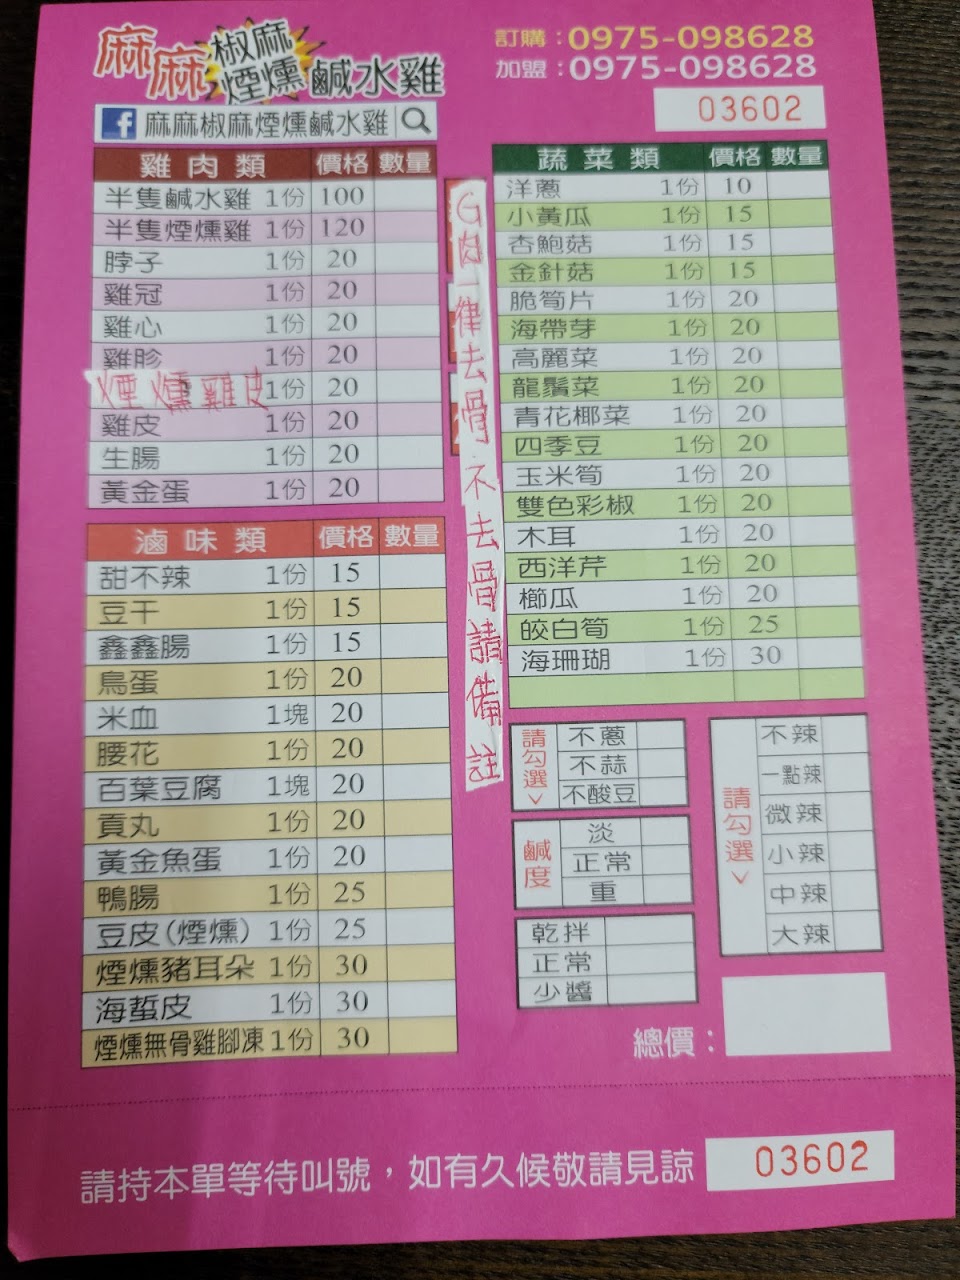 麻麻椒麻煙燻鹹水雞
訂購：0975-098628
加盟：0975-098628
麻麻椒麻煙燻鹹水雞
03602
雞肉類 價格 數量
半隻鹹水雞 1份 100
半隻煙燻雞 1份 120
脖子 1份 20
雞冠 1份 20
雞心 1份 20
雞胗 1份 20
煙燻雞皮 1份 20
雞皮 1份 20
生腸 1份 20
黃金蛋 1份 20
滷味類 價格 數量
甜不辣 1份 15
豆干 1份 15
鑫鑫腸 1份 15
鳥蛋 1份 20
米血 1塊 20
腰花 1份 20
百葉豆腐 1塊 20
貢丸 1份 20
黃金魚蛋 1份 20
鴨腸 1份 25
豆皮(煙燻) 1份 25
煙燻豬耳朵 1份 30
海蜇皮 1份 30
煙燻無骨雞腳凍 1份 30
G肉一律去骨.不去骨請備註
蔬菜類 價格 數量
洋蔥 1份 10
小黃瓜 1份 15
杏鮑菇 1份 15
金針菇 1份 15
脆筍片 1份 20
海帶芽 1份 20
高麗菜 1份 20
龍鬚菜 1份 20
青花椰菜 1份 20
四季豆 1份 20
玉米筍 1份 20
雙色彩椒 1份 20
木耳 1份 20
西洋芹 1份 20
櫛瓜 1份 20
皎白筍 1份 25
海珊瑚 1份 30
請勾選
不蔥
不蒜
不酸豆
鹹度
淡
正常
重
乾拌
正常
少醬
請勾選
不辣
一點辣
微辣
小辣
中辣
大辣
總價：
請持本單等待叫號，如有久候敬請見諒
03602